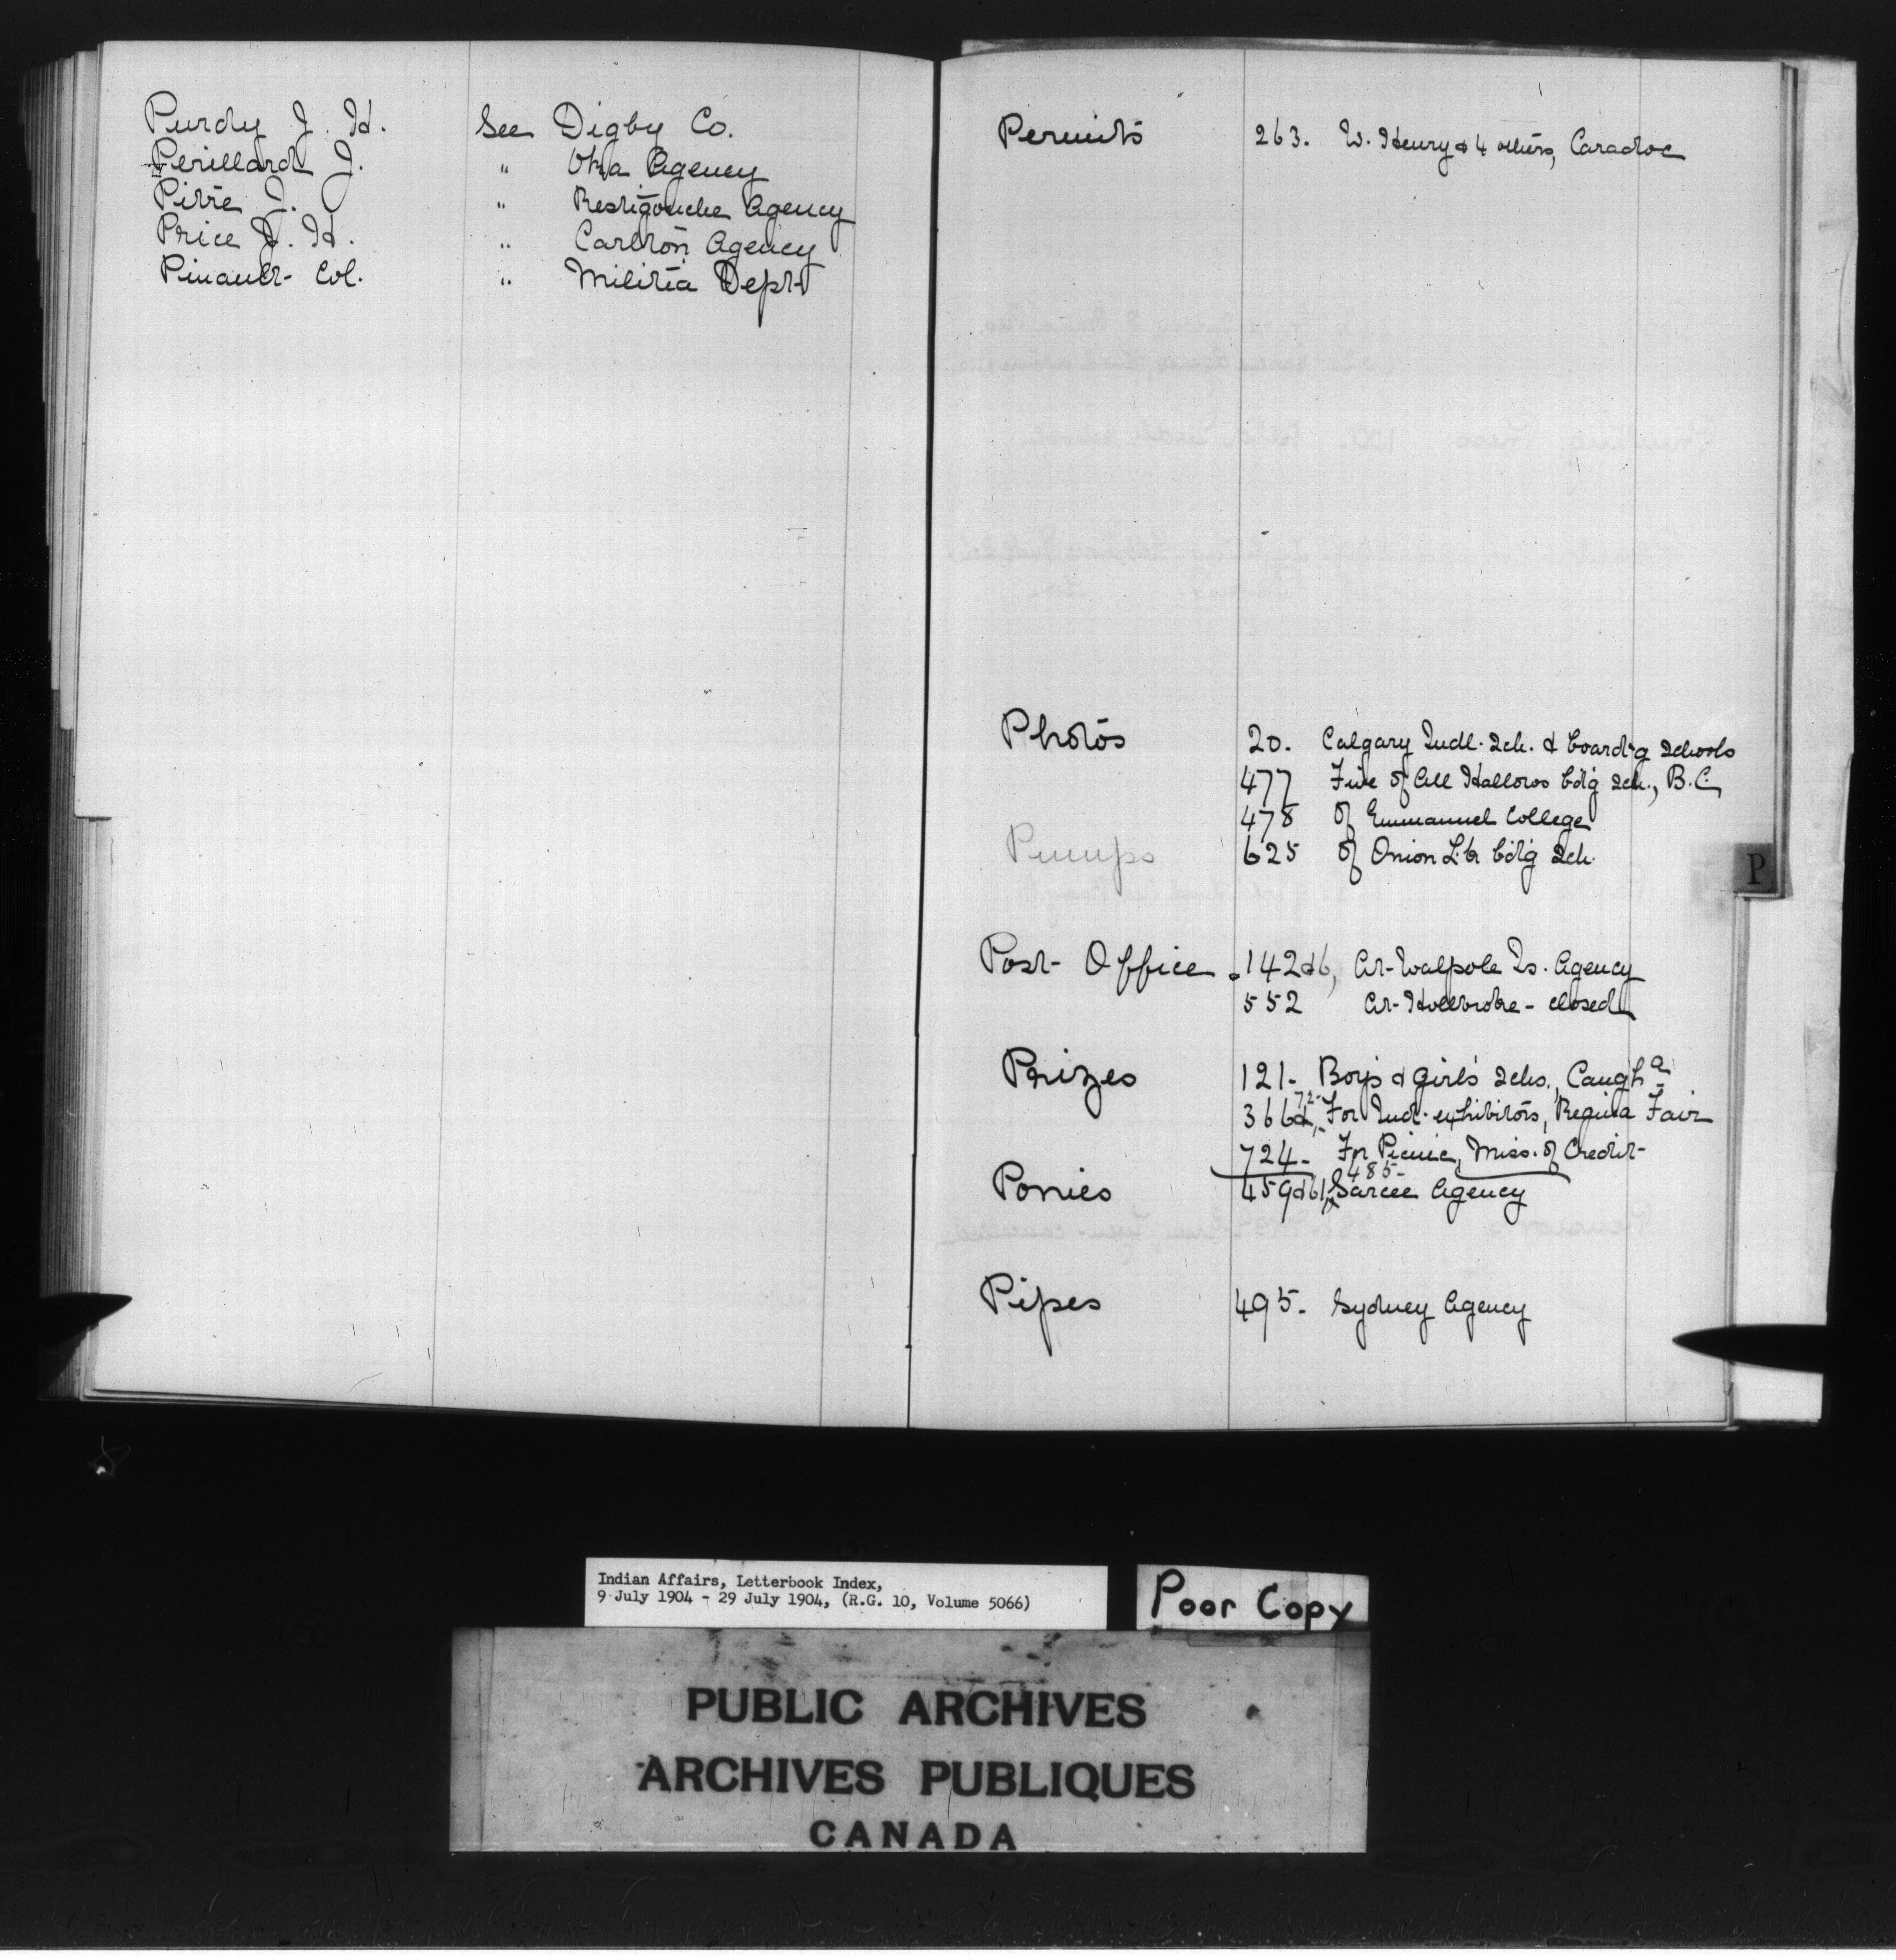 Purdy J. H. See Digby Co.
Perillard J. " Oka Agency
Pirre J. " Restigouche Agency
Price J. H. " Carlton Agency
Pinault Col. " Militia Dept
Permits 263. W. Henry & 4 others, Caradoc
Photos 20. Calgary Indl. Sch. & board'g schools
477 Five of All Hallows bdg sch., B.C.
478 of Emmanuel College
Pumps 625 of Onion L. bdg Sch.
Post Office 142 & 6, At Walpole Is. Agency
552 At Hollbroke - closed
Prizes 121- Boys & girls schs., Caugh a
366 & 72- For Ind. exhibitors, Regina Fair
724- For Picnic, Miss. of Credit
Ponies 459 & 61, 485- Sarcee Agency
Pipes 495- Sydney Agency
P
Indian Affairs, Letterbook Index,
9 July 1904 - 29 July 1904, (R.G. 10, Volume 5066)
Poor Copy
PUBLIC ARCHIVES
ARCHIVES PUBLIQUES
CANADA